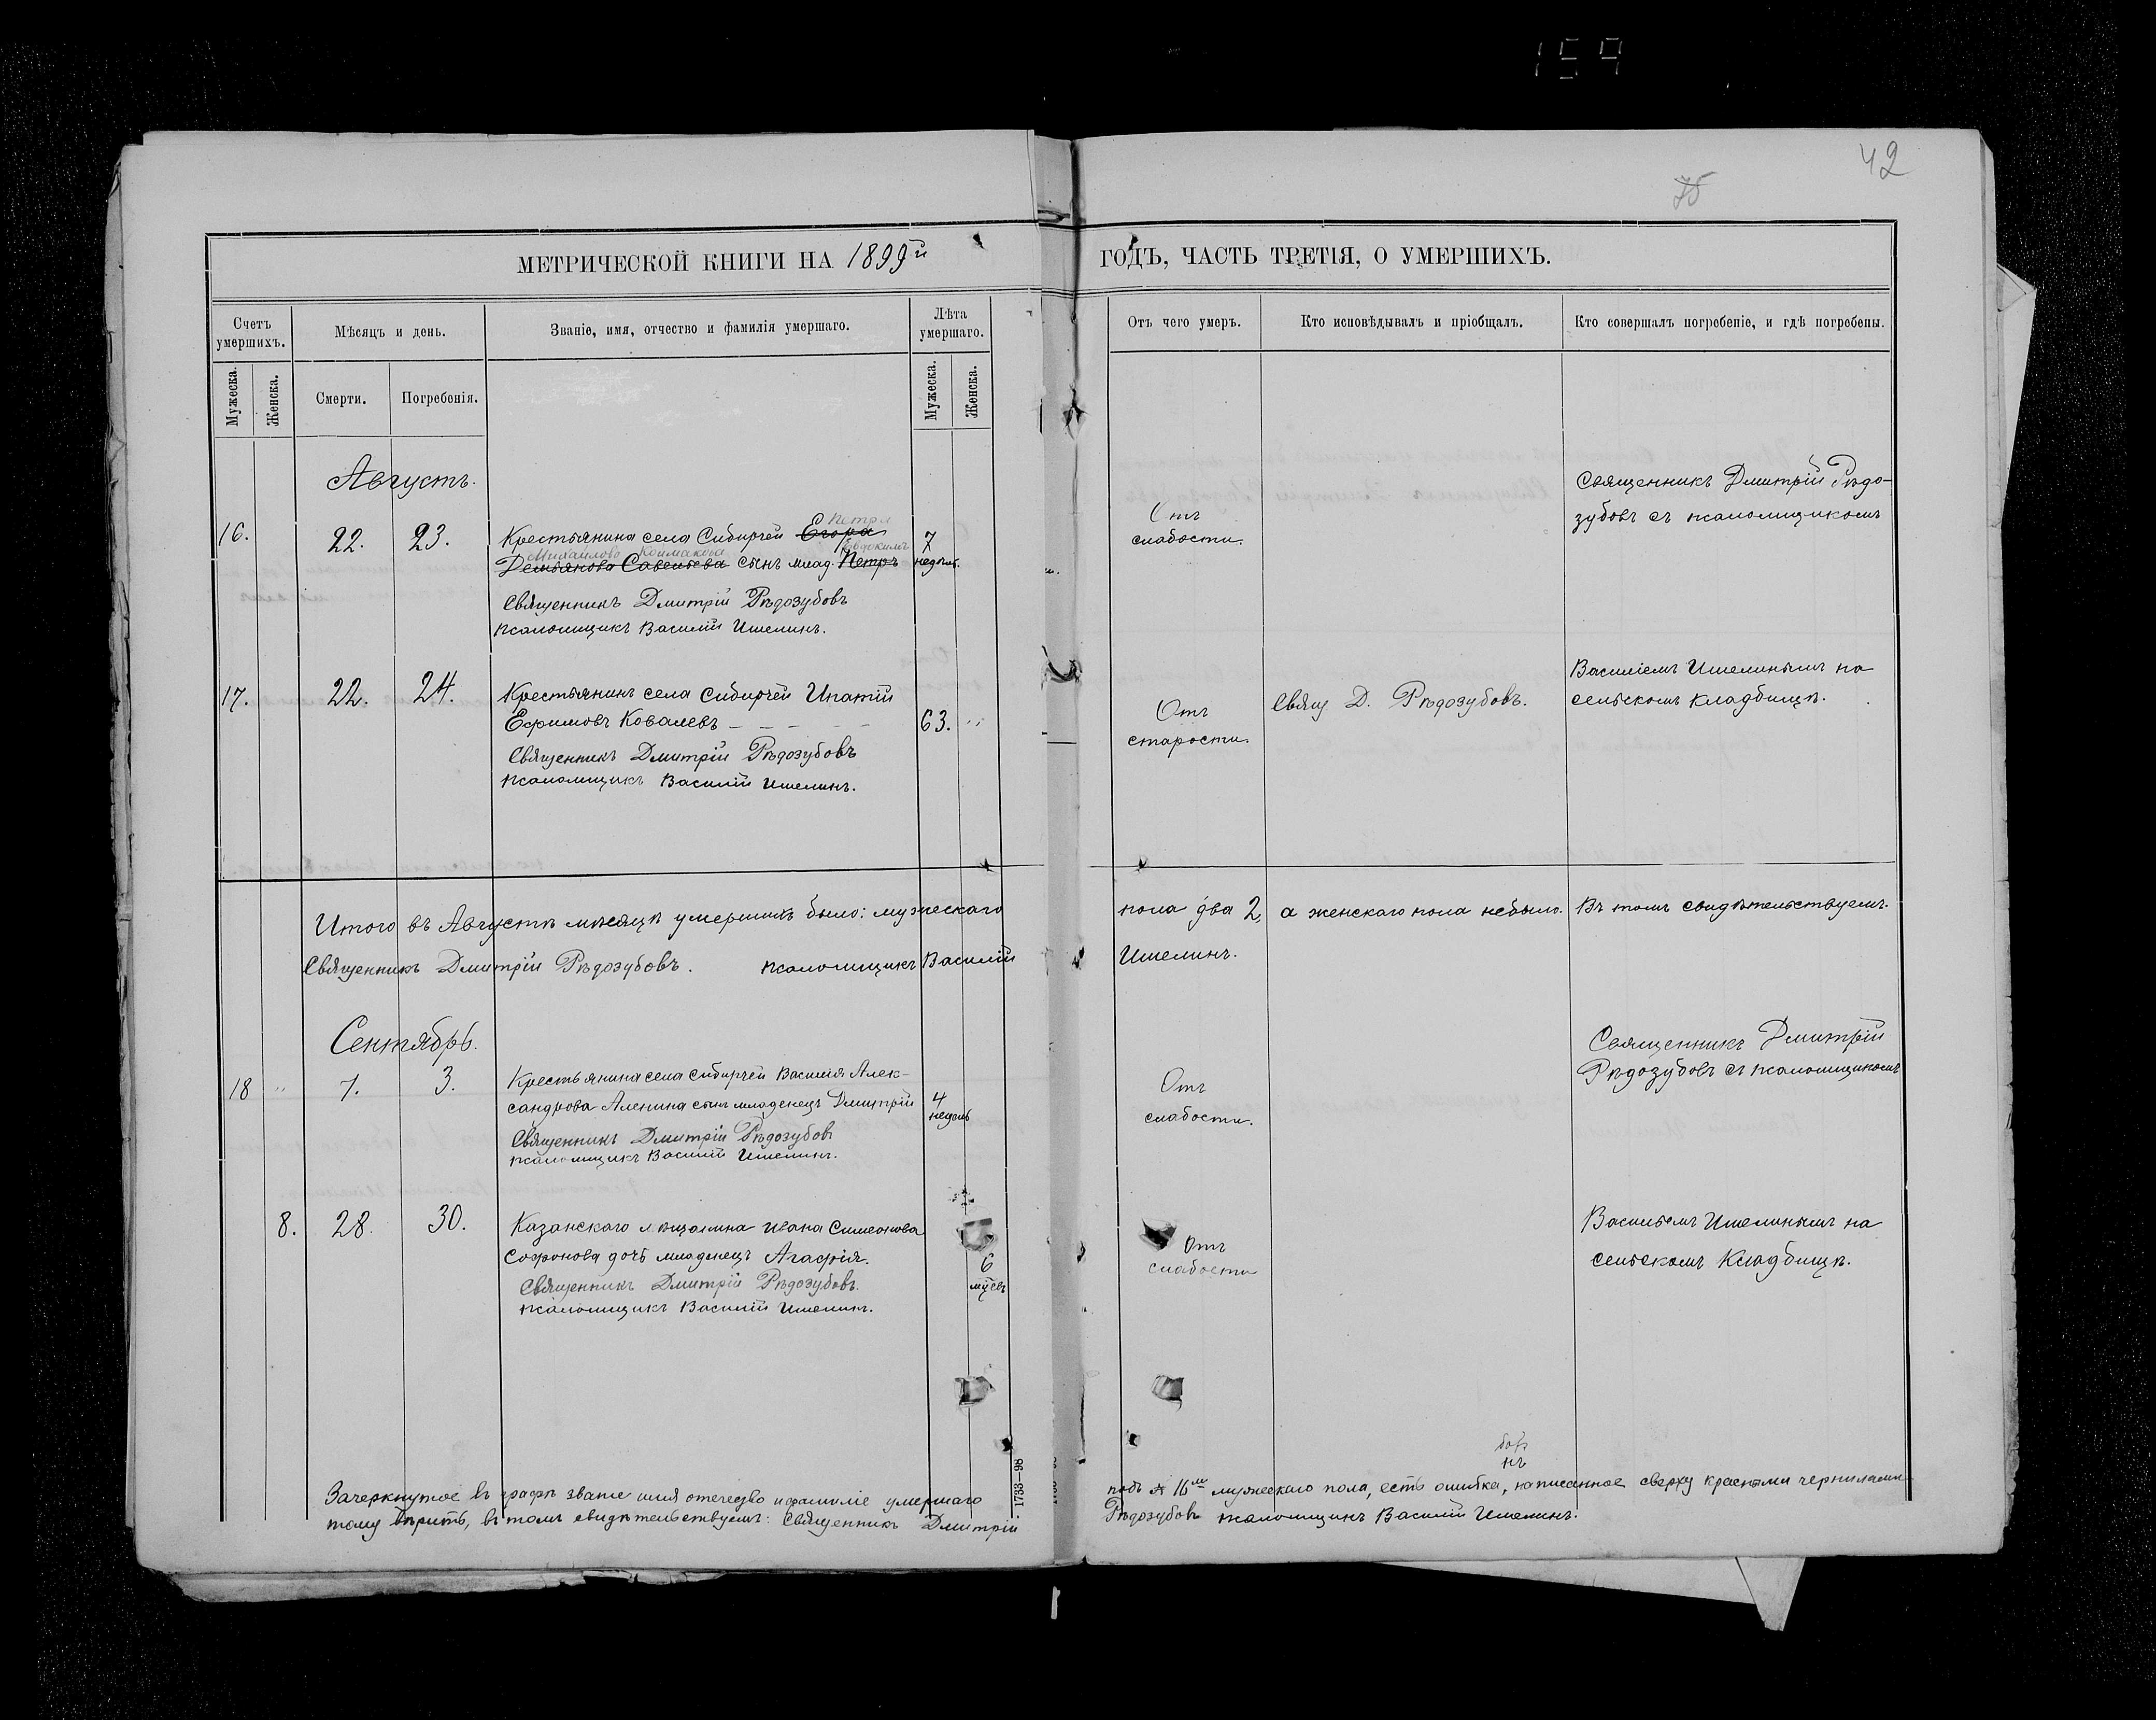 159
42
75
МЕТРИЧЕСКОЙ КНИГИ НА 1899й
ГОДЪ, ЧАСТЬ ТРЕТІЯ, О УМЕРШИХЪ.
Счетъ умершихъ.
Мѣсяцъ и день.
Званіе, имя, отчество и фамилія умершаго.
Лѣта умершаго.
Отъ чего умеръ.
Кто исповѣдывалъ и пріобщалъ.
Кто совершалъ погребеніе, и гдѣ погребены.
Мужеска.
Женска.
Смерти.
Погребенія.
Мужеска.
Женска.
Августъ.
Священникъ Дмитрій Рѣдо-
Петра
16. 22. 23. Крестьянина села Сибирчей Егора 7
Отъ
зубовъ съ псаломщикомъ
Михайлова Колмакова Евдокимъ
Демьянова Савельева сынъ млад. Петръ недѣль.
слабости.
Священникъ Дмитрій Рѣдозубовъ
псаломщикъ Василій Ишелинъ.
17. 22. 24. Крестьянинъ села Сибирчей Ипатій
Ефимовъ Ковалевъ 63. „
Священникъ Дмитрій Рѣдозубовъ
псаломщикъ Василій Ишелинъ.
Отъ
старости.
Свящ Д. Рѣдозубовъ.
Василіемъ Ишелинымъ на
сельскомъ кладбищѣ.
Итого въ Августѣ мѣсяцѣ умершихъ было: мужескаго
пола два 2, а женскаго пола небыло. Въ томъ свидѣтельствуемъ.
Священникъ Дмитрій Рѣдозубовъ. псаломщикъ Василій
Ишелинъ.
Сентябрь.
18 „ 1. 3. Крестьянина села Сибирчей Василія Алек-
сандрова Аленина сынъ младенецъ Дмитрій 4
недѣль
Священникъ Дмитрій Рѣдозубовъ
псаломщикъ Василій Ишелинъ.
Отъ
слабости.
Священникъ Дмитрій
Рѣдозубовъ съ псаломщикомъ
8. 28. 30. Казанскаго мѣщанина Ивана Симеонова
Софронова дочь младенецъ Агафія. 6
мѣсяц
Священникъ Дмитрій Рѣдозубовъ.
псаломщикъ Василій Ишелинъ.
Отъ
слабости
Васильемъ Ишелинымъ на
сельскомъ Кладбищѣ.
1733—98
Зачеркнутое въ графѣ званіе имя отечество и фамиліе умершаго
подъ № 16мъ мужескаго пола, есть ошибка, написанное сверху красными чернилами
тому вѣрить, въ томъ свидѣтельствуемъ: Священникъ Дмитрій
Рѣдозубовъ псаломщикъ Василій Ишелинъ.